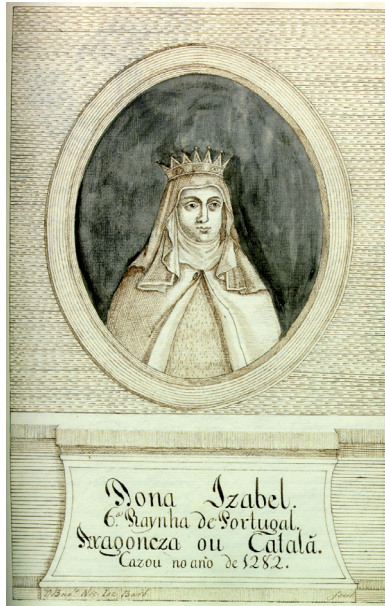 Dona Izabel.
6.ª Raynha de Portugal.
Aragoneza ou Catalã.
Cazou no anño de 1282.
fecit